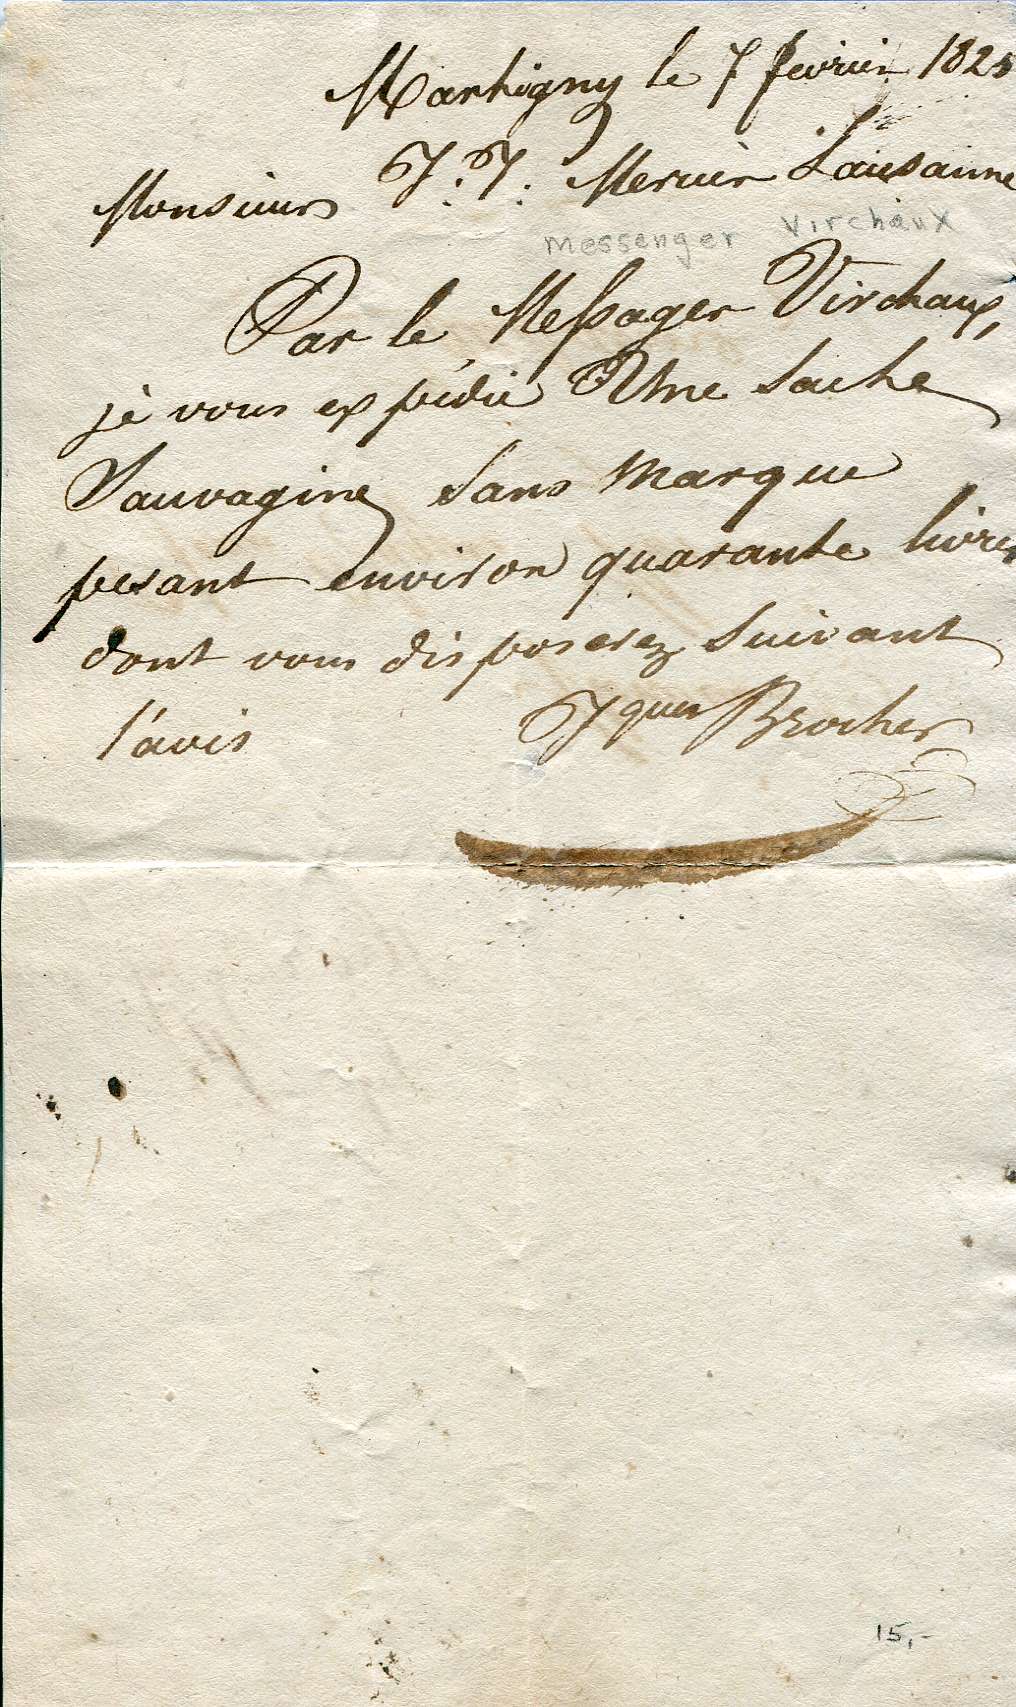 Martigny le 7 fevrier 1825
Monsieur J. J. Mercier Lausanne
messenger Virchaux
Par le Messager Virchaux,
je vous expédié Une Sache
Sauvagine Sans Marque
pesant environ quarante livres
dont vous disposerez Suivant
l'avis Jques Brocher
15,-